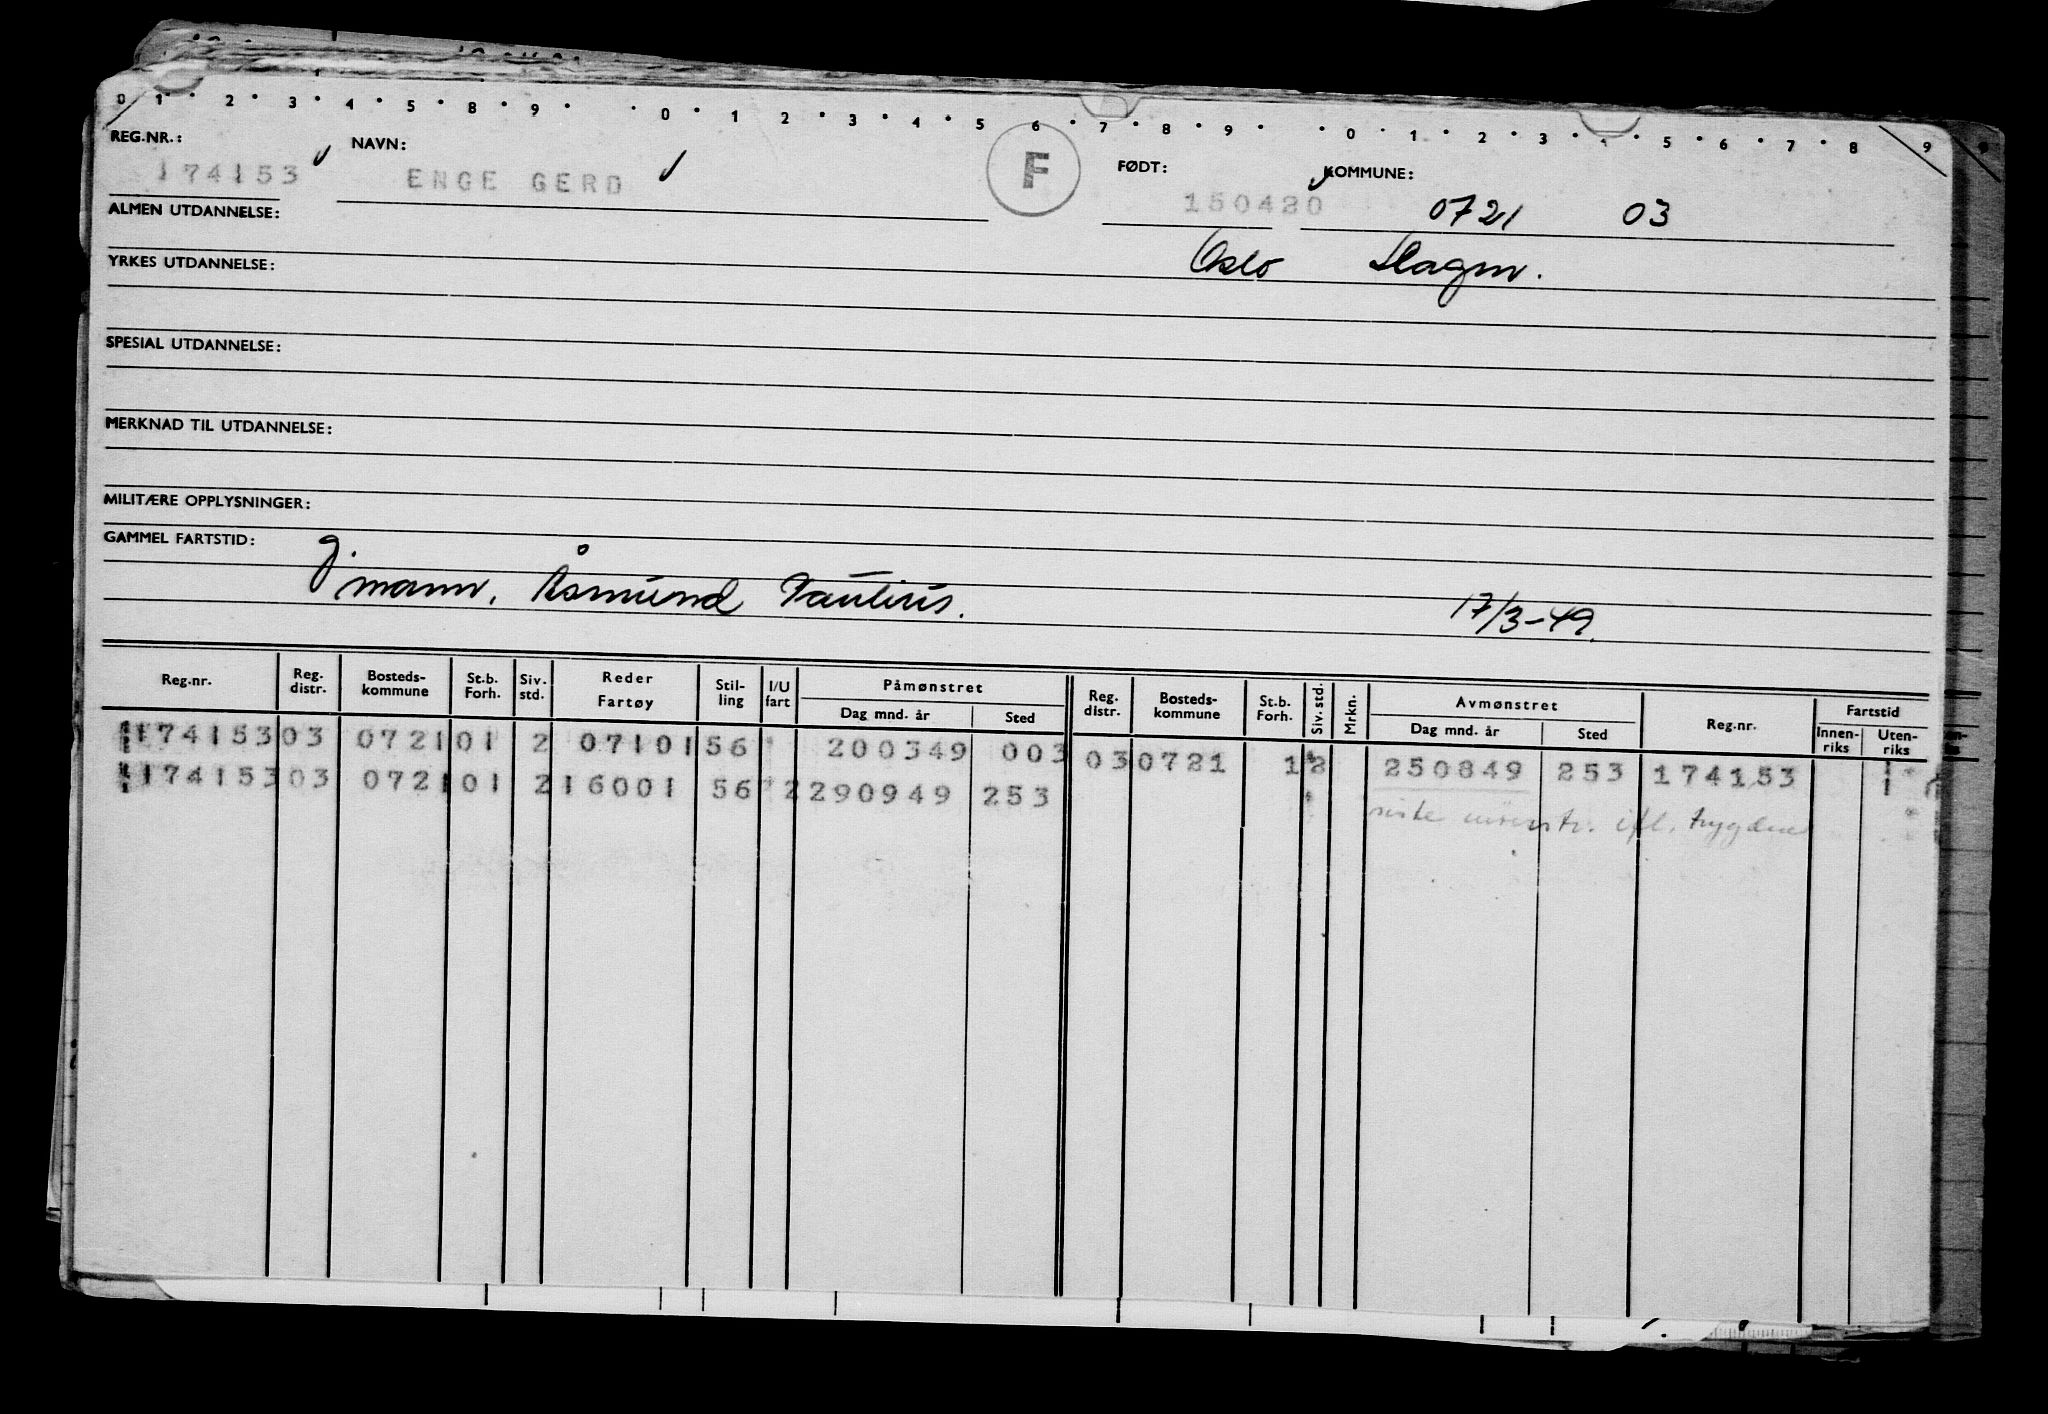 0 1 · 2 · 3 · 4 · 5 · 8 · 9 · · 0 · 1 2 · 3 · 4 · 5 6 · 7 · 8 · 9 · · 0 · 1 · 2 · 3 · · 5 · 6 · 7 · 8 9
REG.NR.: NAVN: F FØDT: KOMMUNE:
174153 ENGE GERD 150420 0721 03
ALMEN UTDANNELSE:
Oslo Slagen.
YRKES UTDANNELSE:
SPESIAL UTDANNELSE:
MERKNAD TIL UTDANNELSE:
MILITÆRE OPPLYSNINGER:
GAMMEL FARTSTID: g.
mann. Åsmund Paulius. 17/3-49.
Reg.nr. Reg. distr. Bosteds-kommune St.b. Forh. Siv. std. Reder Fartøy Stil-ling I/U fart Påmønstret Dag mnd. år Sted Reg. distr. Bosteds-kommune St.b. Forh. Siv. std. Mrkn. Avmønstret Dag mnd. år Sted Reg.nr. Fartstid Innen-riks Uten-riks
174153 03 0721 01 2 07101 56 200349 003 03 0721 1 2 250849 253 174153
174153 03 0721 01 2 16001 56 2 290949 253
siste mønstr. ifl. trygden